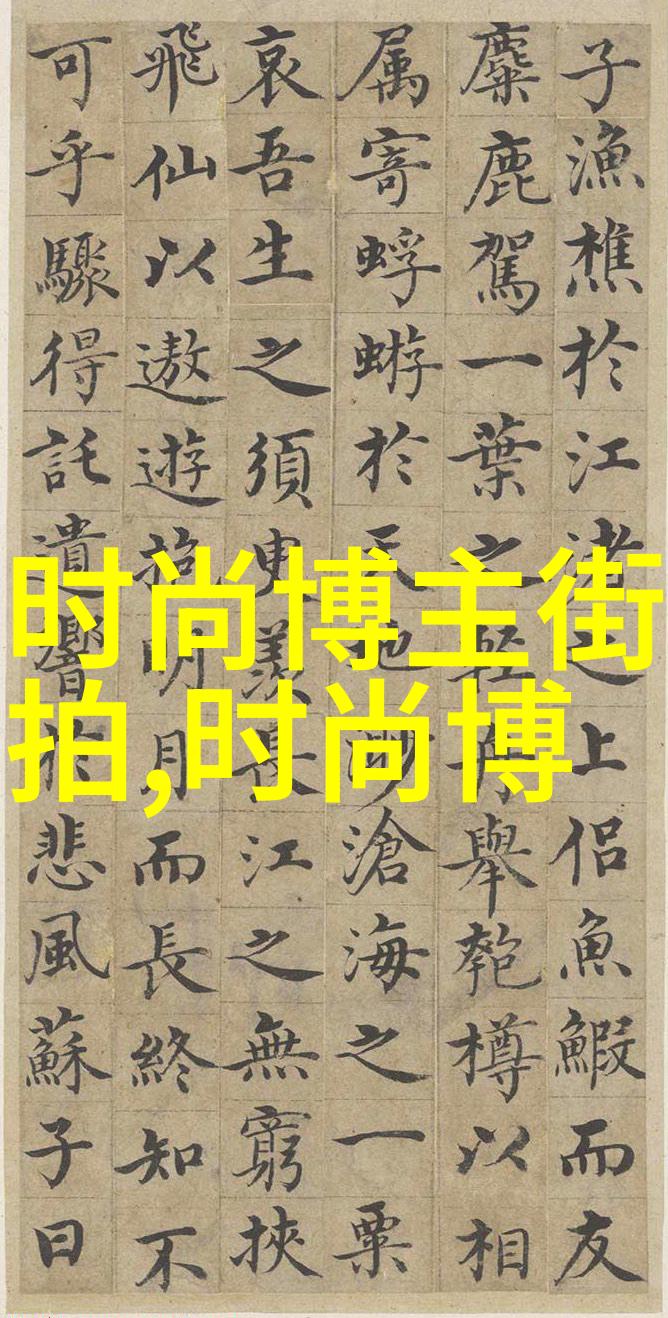 子漁樵於江渚之上侶魚鰕而友
麋鹿駕一葉之輕舟舉匏樽以相
属寄蜉蝣於天地渺滄海之一粟
哀吾生之須臾羨長江之無窮挾
飛仙以遨遊抱明月而長終知不
可乎驟得託遺響於悲風蘇子曰
时尚博主街
拍,时尚博